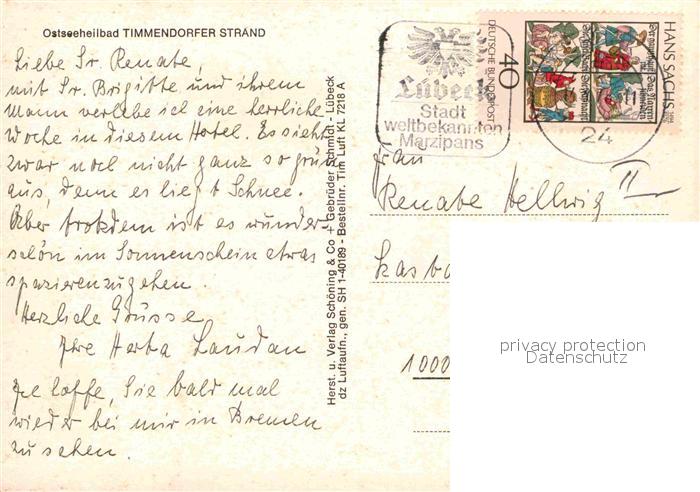 Ostseeheilbad TIMMENDORFER STRAND
Liebe Sr. Renate,
mit Sr. Brigitte und ihrem
Mann verlebe ich eine herrliche
Woche in diesem Hotel. Es sieht
zwar noch nicht ganz so grün
aus, denn es liegt Schnee.
Aber trotzdem ist es wunder-
schön im Sonnenschein etwas
spazierenzugehen.
Herzliche Grüsse
Ihre Herta Laudan
Ich hoffe, Sie bald mal
wieder bei mir in Bremen
zu sehen.
Herst. u. Verlag Schöning & Co + Gebrüder Schmidt - Lübeck
dz Luftaufn., gen. SH 1-40189 - Bestellnr. Tim Luft KL 7218 A
Lübeck
Stadt
weltbekannten
Marzipans
24
DEUTSCHE BUNDESPOST
40
HANS SACHS
Frau
Renate Hellwig II
1000
privacy protection
Datenschutz